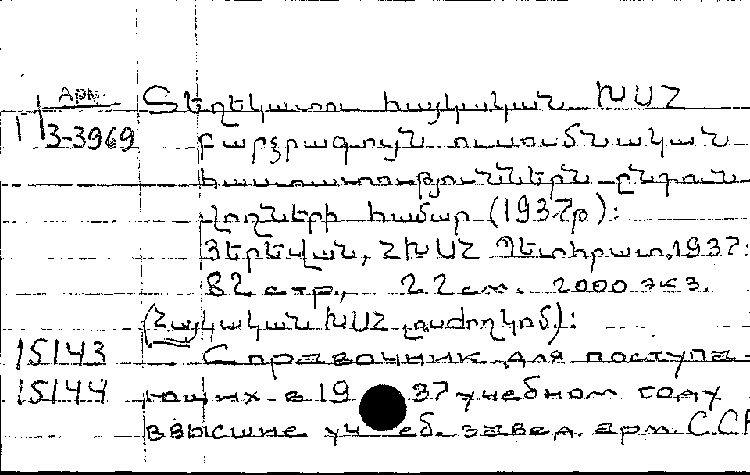 Арм. Տեղեկատու հայկական ԽՍՀ
Г 3-3969 բարձրագույն ուսումնական
հաստատություններն ընդուն-
վողների համար (1937թ):
Յերեվան, ՀԽՍՀ Պետհրատ, 1937:
82 стр., 22 см. 2000 экз.
(Հայկական ԽՍՀ լուսժողկոմ):
15143 Справочник для поступа-
15144 ющих в 1937 учебном году
в высшие учеб. завед. арм. ССР